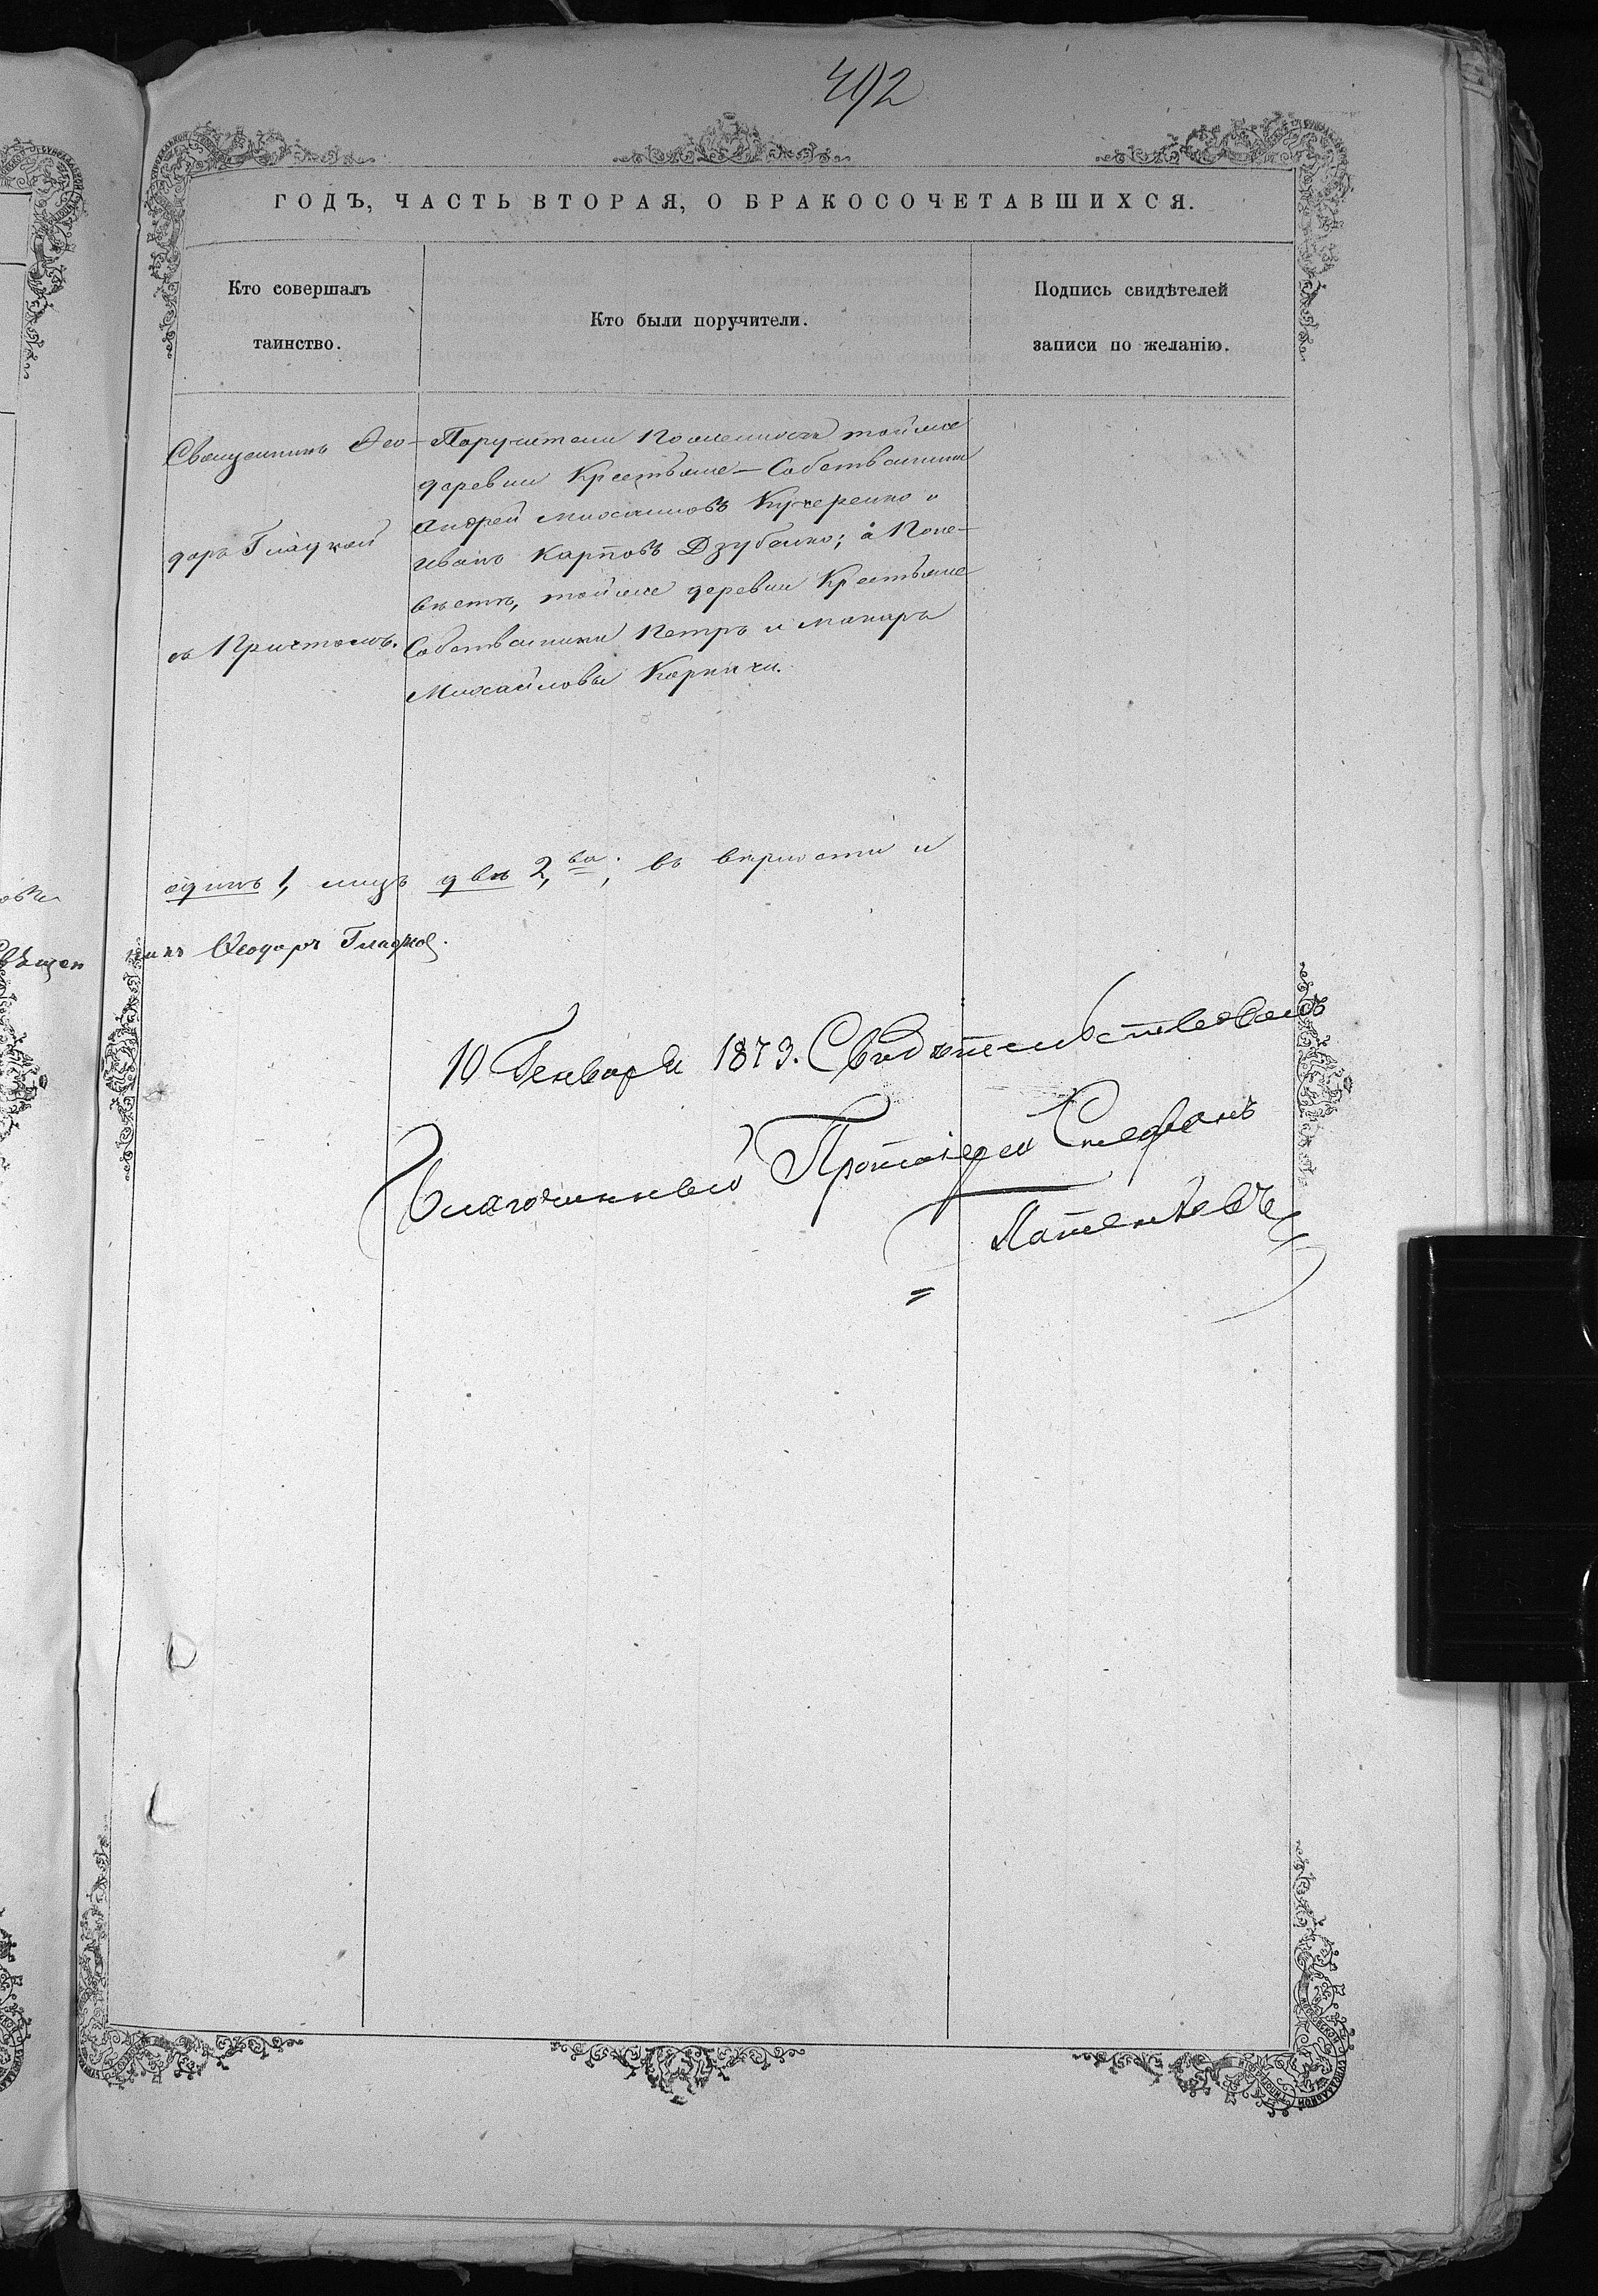 492
ГОДЪ, ЧАСТЬ ВТОРАЯ, О БРАКОСОЧЕТАВШИХСЯ.
Кто совершалъ
таинство.
Кто были поручители.
Подпись свидѣтелей
записи по желанію.
Священникъ Ѳео-
доръ Гладкой
съ Причтомъ.
Поручители По женихѣ тойже
деревни Крестьяне-Собственники
Андрей Михайловъ Кучеренко и
Иванъ Карповъ Дзубенко; а По не-
вѣстѣ, тойже деревни Крестьяне
Собственники Петръ и Макаръ
Михайловы
одинъ 1, лицъ двѣ 2, въ вѣрности и
Свѣщен никъ Ѳеодоръ Гладкой.
10 Генваря 1873. Свидѣтельствовалъ
Благочинный Протоіерей Стефанъ